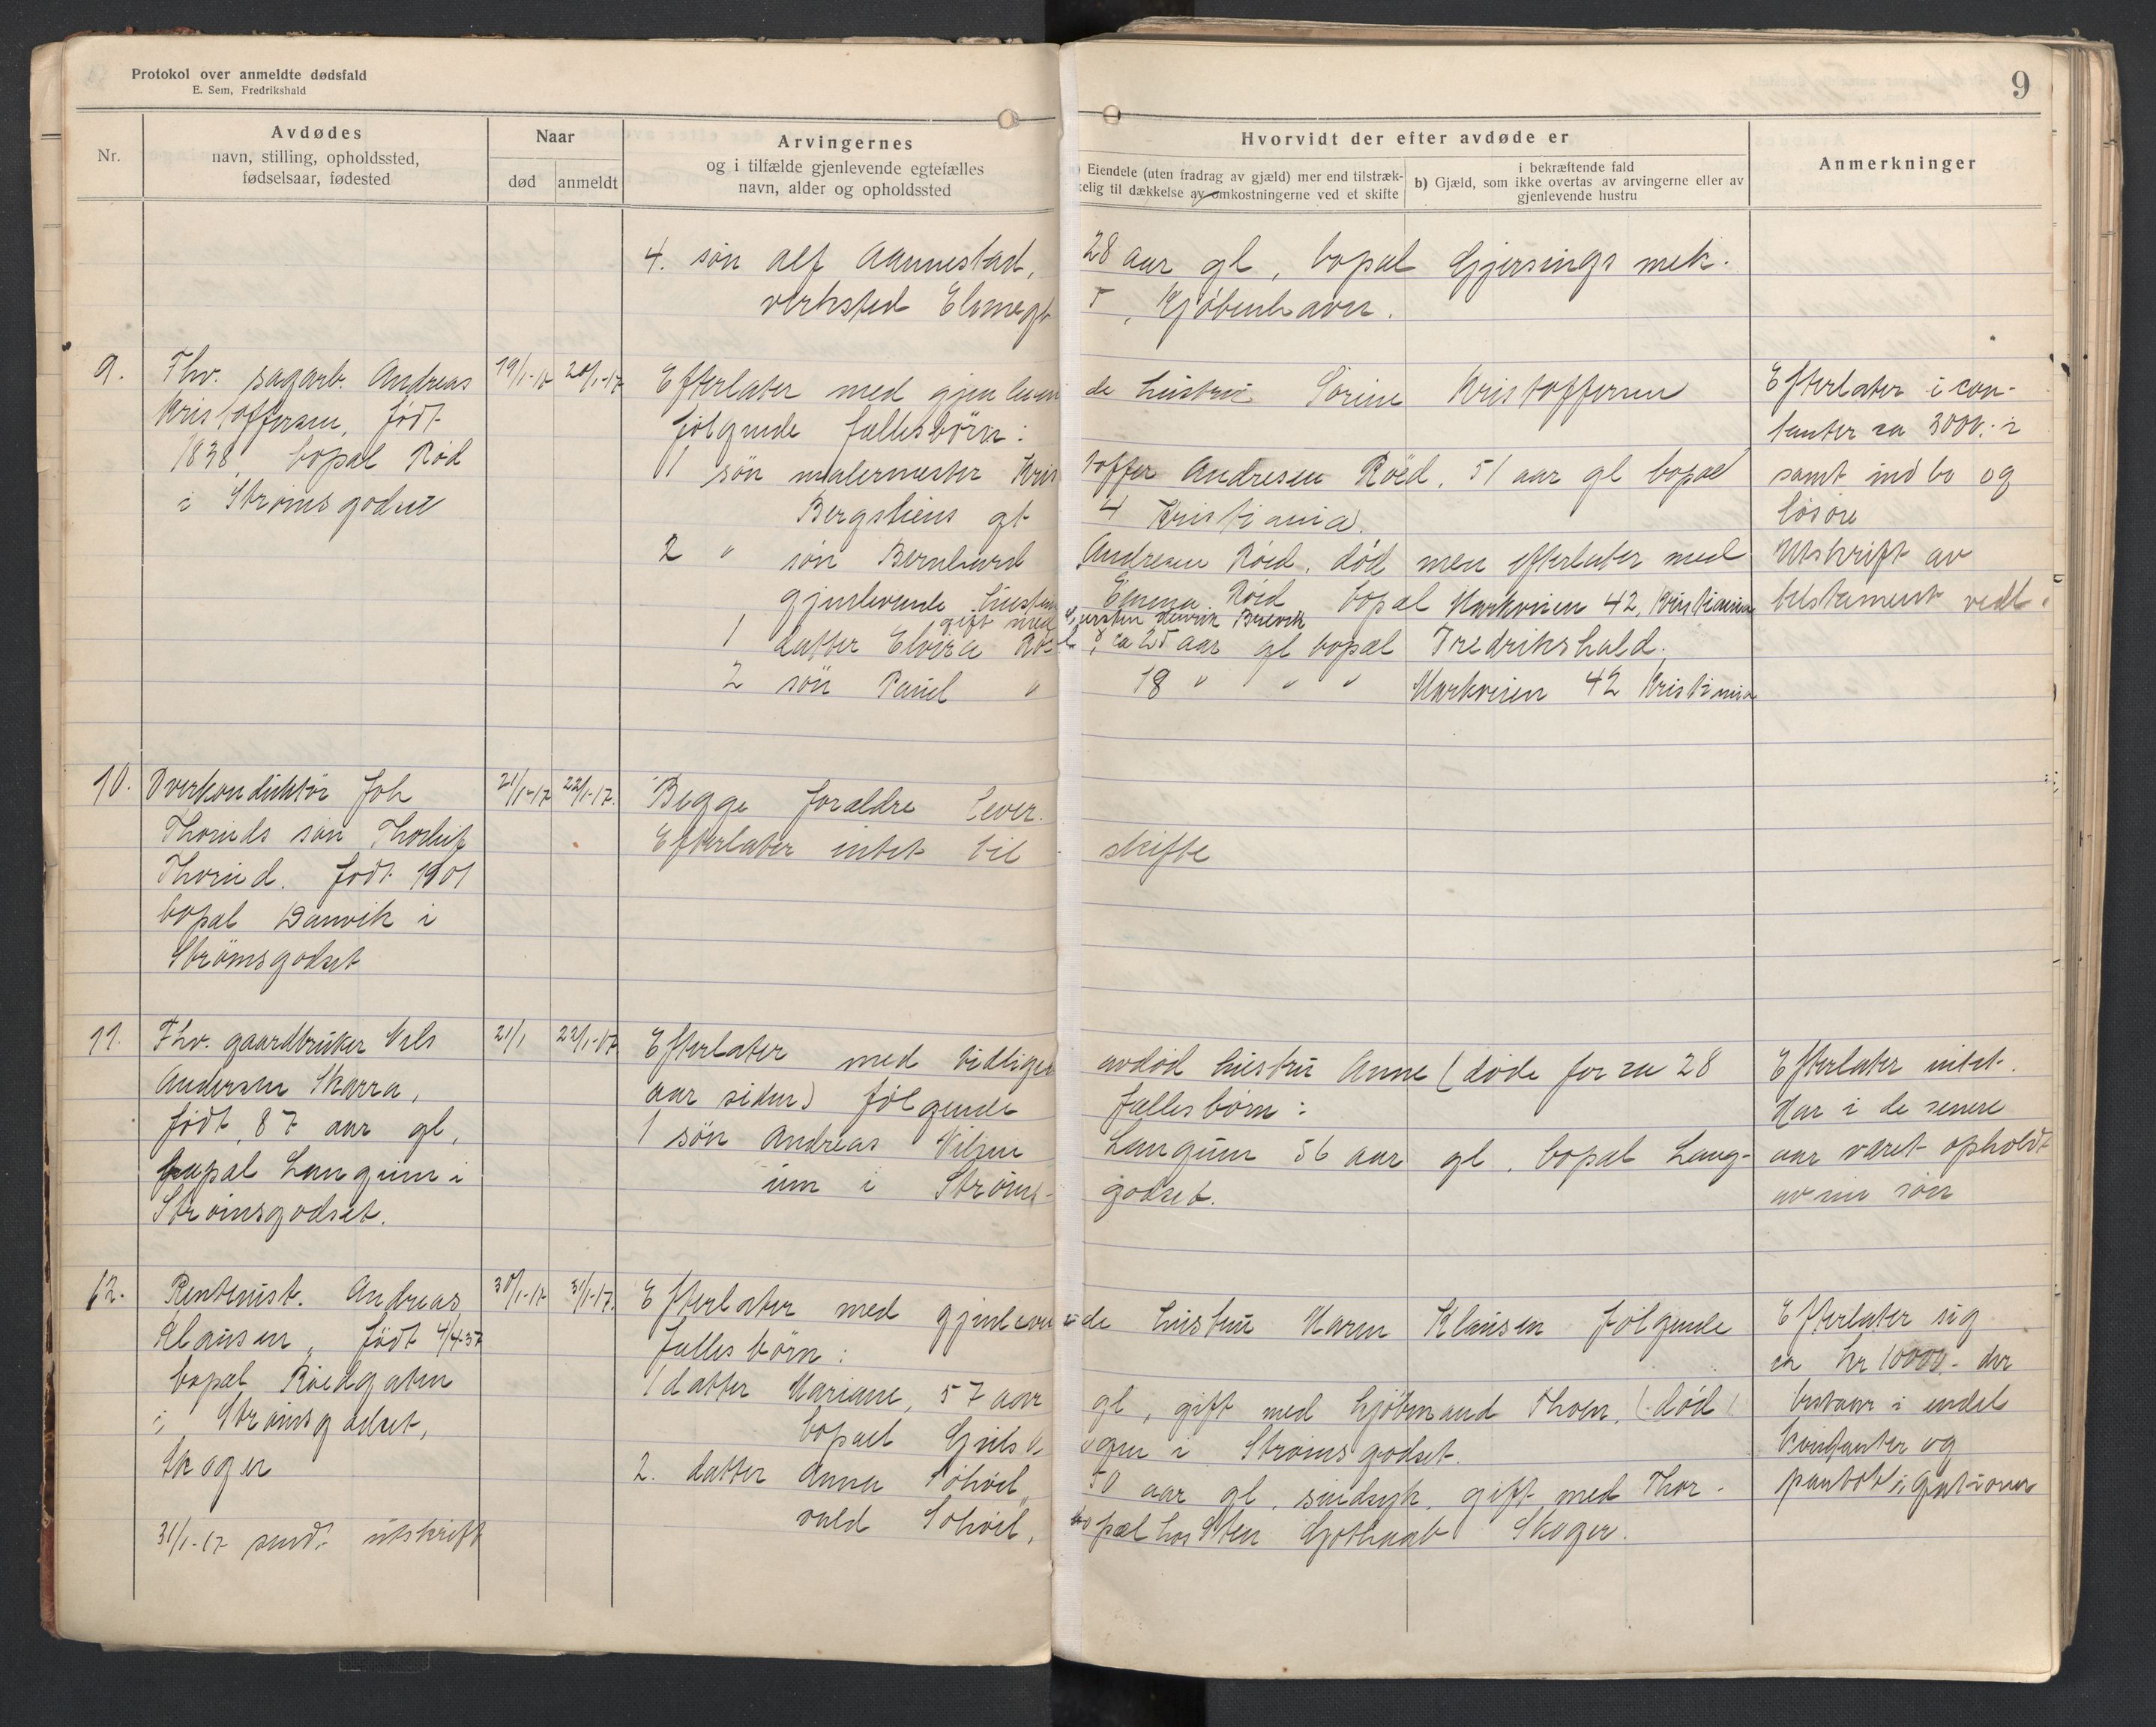 Protokol over anmeldte dødsfald
E. Sem, Fredrikshald
9
Nr.
Avdødes
navn, stilling, opholdssted,
fødselsaar, fødested
Naar
død
anmeldt
Arvingernes
og i tilfælde gjenlevende egtefælles
navn, alder og opholdssted
Hvorvidt der efter avdøde er
Eiendele (uten fradrag av gjæld) mer end tilstræk-
kelig til dækkelse av omkostningerne ved et skifte
i bekræftende fald
b) Gjæld, som ikke overtas av arvingerne eller av
gjenlevende hustru
Anmerkninger
4. søn Alf Aannestad, 28 aar gl, bopæl Gjersings mek.
verksted Elmegt 5, Kjøbenhavn.
9.
Fhv. sagarb. Andreas
Kristoffersen, født
1838, bopæl Rød
i Strømsgodset
19/1-17
20/1-17
Efterlater med gjenlevende hustru Sørine Kristoffersen
følgende fællesbørn:
1 søn malermester Kristoffer Andresen Röed, 51 aar gl bopæl
Bergsliens gt 4 Kristiania.
2 " søn Bernhard Andresen Röed, död men efterlater med
gjenlevende hustru Emma Röed bopæl Markveien 42, Kristiania
gift med Henrik Brevik
1 datter Elvira Röed, ca 25 aar gl bopæl Fredrikshald.
2 søn Paul " 18 " " " Markveien 42 Kristiania
Efterlater i con-
tanter ca 3000.- i
samt indbo og
løsøre
Utskrift av
testament vedl.
10.
Overkonduktør Joh
Thoruds søn Thorleif
Thorud. født 1901
bopæl Danvik i
Strømsgodset
21/1-17
22/1-17.
Begge forældre lever.
Efterlater intet til skifte
11.
Fhv. gaardbruker Nils
Andersen Skarra,
født, 87 aar gl,
bopæl Langum i
Strømsgodset.
21/1
22/1-17
Efterlater med tidligere avdød hustru Anne (døde for ca 28
aar siden) følgende fællesbørn:
1 søn Andreas Nilsen Langum 56 aar gl, bopæl Lang-
um i Strøms- godset.
Efterlater intet.
Har i de senere
aar været opholdt
av sin søn
12.
Rentenist. Andreas
Klausen, født 4/4-37
bopæl Röedgaten
i Strømsgodset,
Skoger
31/1-17 sendt utskrift
30/1-17
31/1-17.
Efterlater med gjenlevende hustru Karen Klausen følgende
fællesbørn:
1 datter Mariane, 57 aar gl, gift med kjøbmand Thoen, (død)
bopæl i Strømsgodset.
2. datter Anna Solvöl, 50 aar gl, sindsyk, gift med Thor-
vald Solvöl, bopæl hos Sten Gothaab Skoger.
Efterlater sig
ca kr 10000.- der
bestaar i endel
kontanter og
pantobligationer